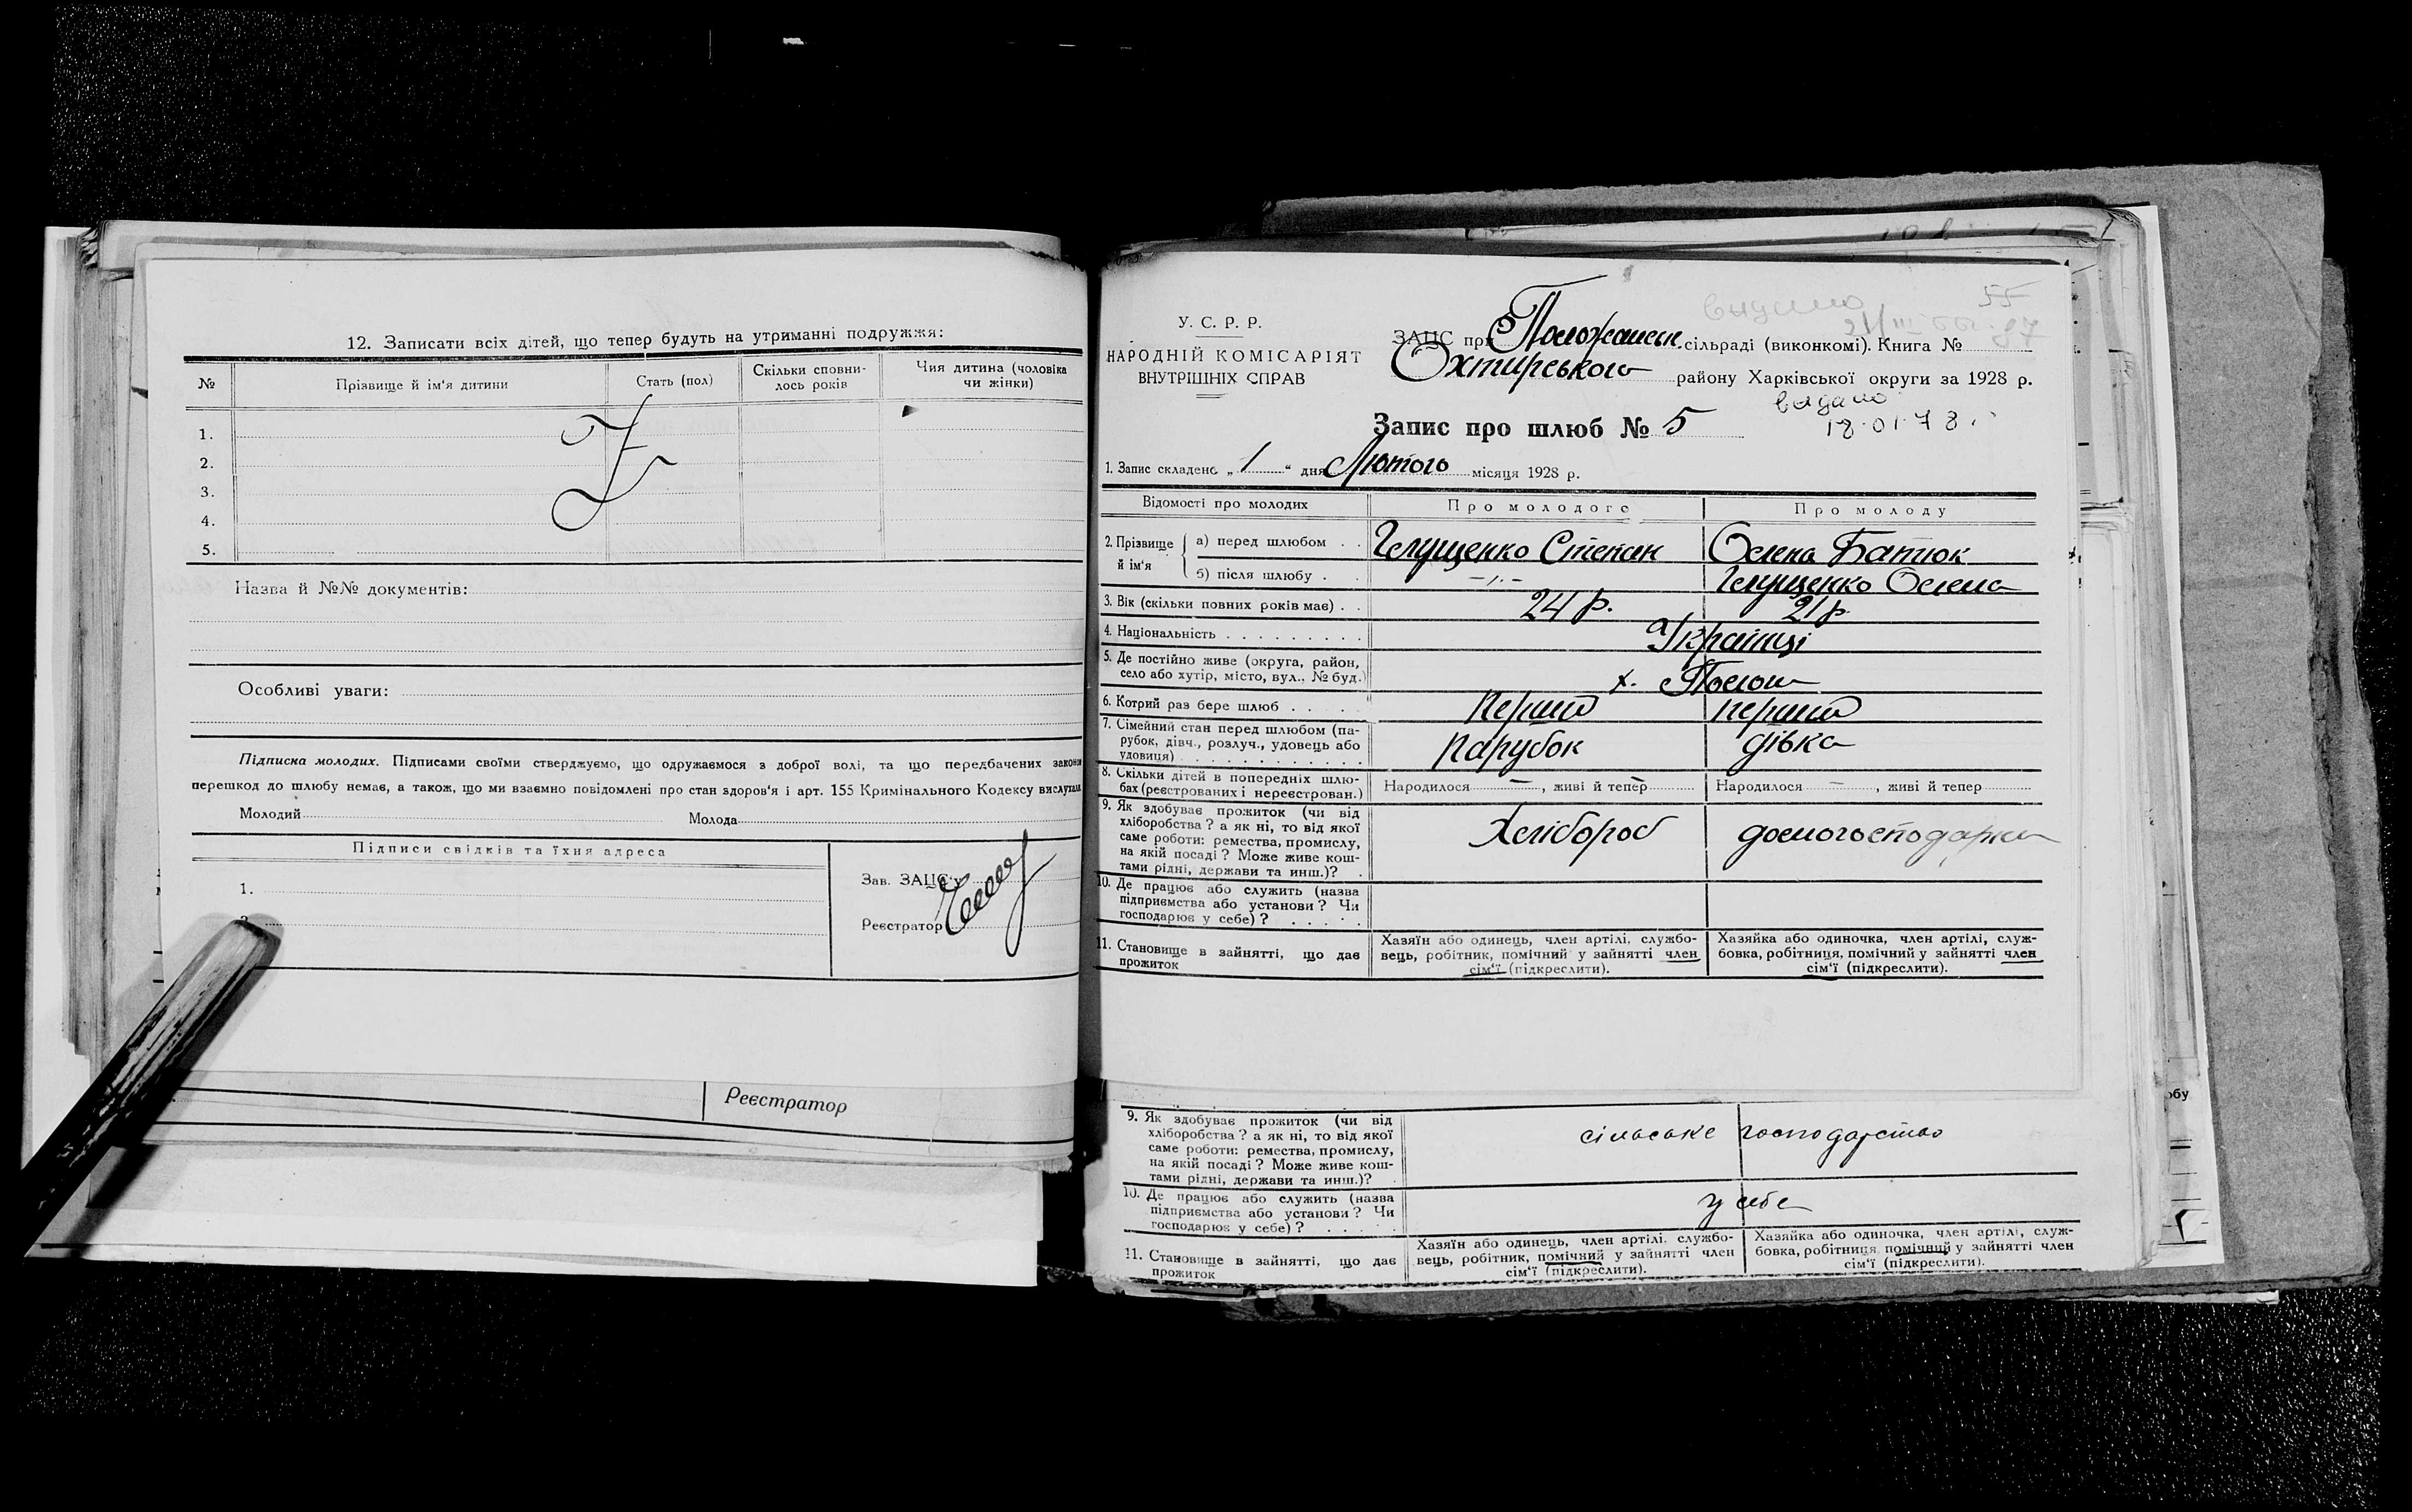 12. Записати всіх дітей, що тепер будуть на утриманні подружжя:
№ Прізвище й ім'я дитини Стать (пол) Скільки сповни-лось років Чия дитина (чоловіка чи жінки)
1.
2.
3.
4.
5.
Назва й №№ документів:
Особливі уваги:
Підписка молодих. Підписами своїми стверджуємо, що одружаємося з доброї волі, та що передбачених закон
перешкод до шлюбу немає, а також, що ми взаємно повідомлені про стан здоров'я і арт. 155 Кримінального Кодексу вислухал
Молодий Молода
Підписи свідків та їхня адреса
1.
Зав. ЗАЦС'у
Реєстратор
Реєстратор
55
видано
У. С. Р. Р.
НАРОДНІЙ КОМІСАРІЯТ
ВНУТРІШНІХ СПРАВ
ЗАЦС при сільраді (виконкомі). Книга №
Охтирського району Харківської округи за 1928 р.
видано
18.01.78.
Запис про шлюб № 5
1. Запис складено „1" дня Лютого місяця 1928 р.
Відомості про молодих Про молодого Про молоду
2. Прізвище й ім'я а) перед шлюбом . . Степан Олена Батюк
б) після шлюбу . . -"- Олена
3. Вік (скільки повних років має) . . 24 р. 21 р.
4. Національність . . . . . . . . . Українці
5. Де постійно живе (округа, район,
село або хутір, місто, вул., № буд.) х.
6. Котрий раз бере шлюб . . . . . Перший перший
7. Сімейний стан перед шлюбом (па-
рубок, дівч., розлуч., удовець або
удовиця) . . . . . . . . . . . . Парубок дівка
8. Скільки дітей в попередніх шлю-
бах (реєстрованих і нереєстрован.) Народилося —, живі й тепер — Народилося —, живі й тепер
9. Як здобуває прожиток (чи від
хліборобства? а як ні, то від якої
саме роботи: ремества, промислу,
на якій посаді? Може живе кош-
тами рідні, держави та инш.)? . Хлібороб домогосподарка
10. Де працює або служить (назва
підприємства або установи? Чи
господарює у себе)? . . . . .
11. Становище в зайнятті, що дає
прожиток
Хазяїн або одинець, член артілі, службо-
вець, робітник, помічний у зайнятті член
сім'ї (підкреслити).
Хазяйка або одиночка, член артілі, служ-
бовка, робітниця, помічний у зайнятті член
сім'ї (підкреслити).
9. Як здобуває прожиток (чи від
хліборобства? а як ні, то від якої
саме роботи: ремества, промислу,
на якій посаді? Може живе кош-
тами рідні, держави та инш.)? . сільське господарство
10. Де працює або служить (назва
підприємства або установи? Чи
господарює у себе)? . . . . . у себе
11. Становище в зайнятті, що дає
прожиток
Хазяїн або одинець, член артілі, службо-
вець, робітник, помічний у зайнятті член
сім'ї (підкреслити).
Хазяйка або одиночка, член артілі, служ-
бовка, робітниця, помічний у зайнятті член
сім'ї (підкреслити).